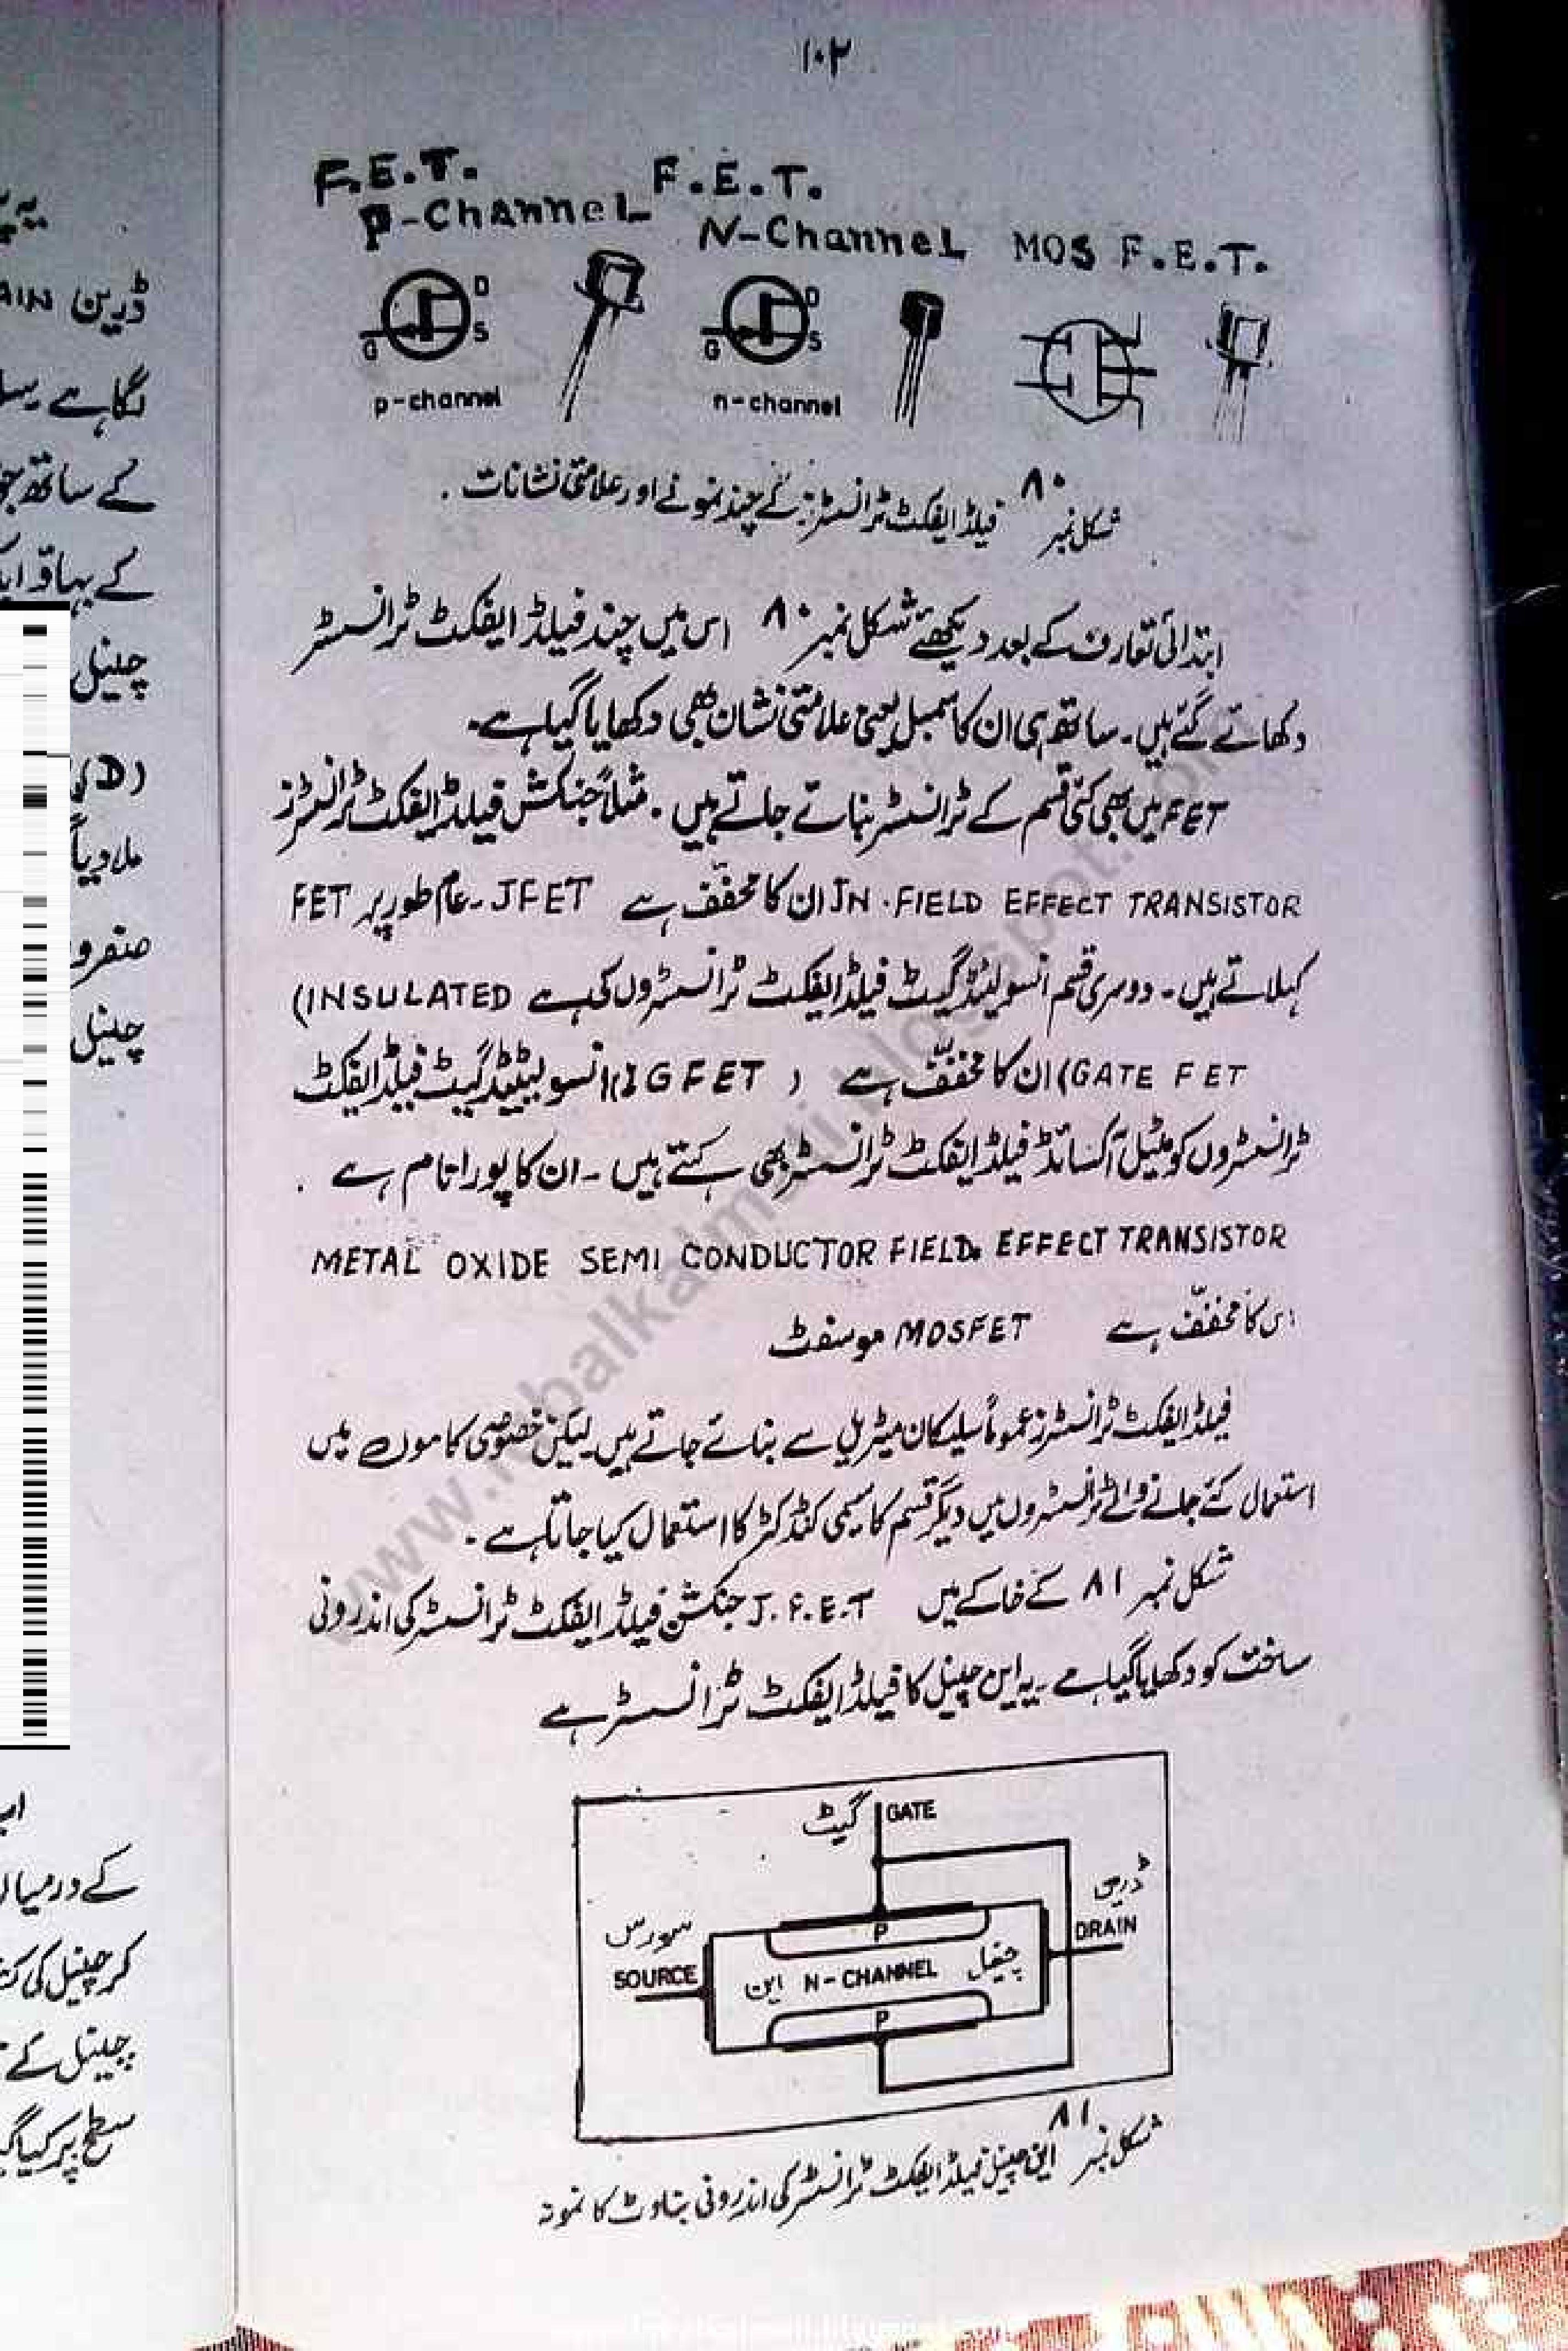 ۱۰۲
F.E.T.
P-Channel
F.E.T.
N-Channel
MOS F.E.T.
D
G
S
p-channel
D
G
S
n-channel
شکل نمبر ۸۰ فیلڈ ایفکٹ ٹرانسسٹرز کے چند نمونے اور علامتی نشانات .
ابتدائی تعارف کے بعد دیکھئے شکل نمبر ۸۰ اس میں چند فیلڈ ایفکٹ ٹرانسسٹر
دکھاتے گئے ہیں۔ ساتھ ہی ان کا سمبل یعنی علامتی نشان بھی دکھایا گیا ہے۔
FET میں بھی کئی قسم کے ٹرانسسٹر بناتے جاتے ہیں ۔ مثلاً جنکشن فیلڈ ایفکٹ ٹرانسسٹرز
JN . FIELD EFFECT TRANSISTOR ان کا مخفف ہے JFET ۔ عام طور پر FET
کہلاتے ہیں ۔ دوسری قسم انسولیٹڈ گیٹ فیلڈ ایفکٹ ٹرانسسٹروں کی ہے (INSULATED
GATE FET) ان کا مخفف ہے (IGFET) انسولیٹیڈ گیٹ فیلڈ ایفکٹ
ٹرانسسٹروں کو میٹیل آکسائڈ فیلڈ ایفکٹ ٹرانسسٹر بھی کہتے ہیں ۔ ان کا پورا نام ہے .
METAL OXIDE SEMI CONDUCTOR FIELD. EFFECT TRANSISTOR
اس کا مخفف ہے MOSFET موسفٹ
فیلڈ ایفکٹ ٹرانسسٹرز عموماً سیلیکان میٹریل سے بنائے جاتے ہیں لیکن خصوصی کاموں میں
استعمال کئے جانے والے ٹرانسسٹروں میں دیگر قسم کا سیمی کنڈکٹر کا استعمال کیا جاتا ہے ۔
شکل نمبر ۸۱ کے خاکے میں J.F.E.T جنکشن فیلڈ ایفکٹ ٹرانسسٹر کی اندرونی
ساخت کو دکھایا گیا ہے ۔ یہ این چینل کا فیلڈ ایفکٹ ٹرانسسٹر ہے
گیٹ GATE
ڈرین
DRAIN
سورس
SOURCE
P
این N-CHANNEL چینل
P
شکل نمبر ۸۱ این چینل فیلڈ ایفکٹ ٹرانسسٹر کی اندرونی بناوٹ کا نمونہ
ڈرین
لگا ہے
کے ساتھ
کے بہاؤ
چینل
(D)
چینل
کے درمیان
کر چینل کی
چینل کے
سطح پر کیا